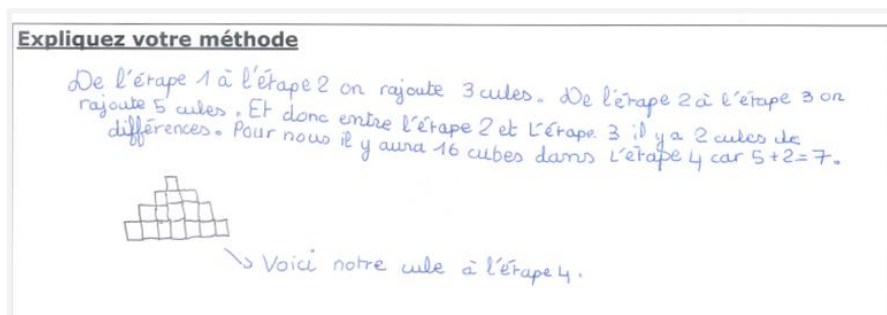 Expliquez votre méthode
De l'étape 1 à l'étape 2 on rajoute 3 cules. De l'étape 2 à l'étape 3 on
rajoute 5 cules. Et donc entre l'étape 2 et l'étape 3 il y a 2 cules de
différences. Pour nous il y aura 16 cubes dans l'étape 4 car 5+2=7.
Voici notre cule à l'étape 4.